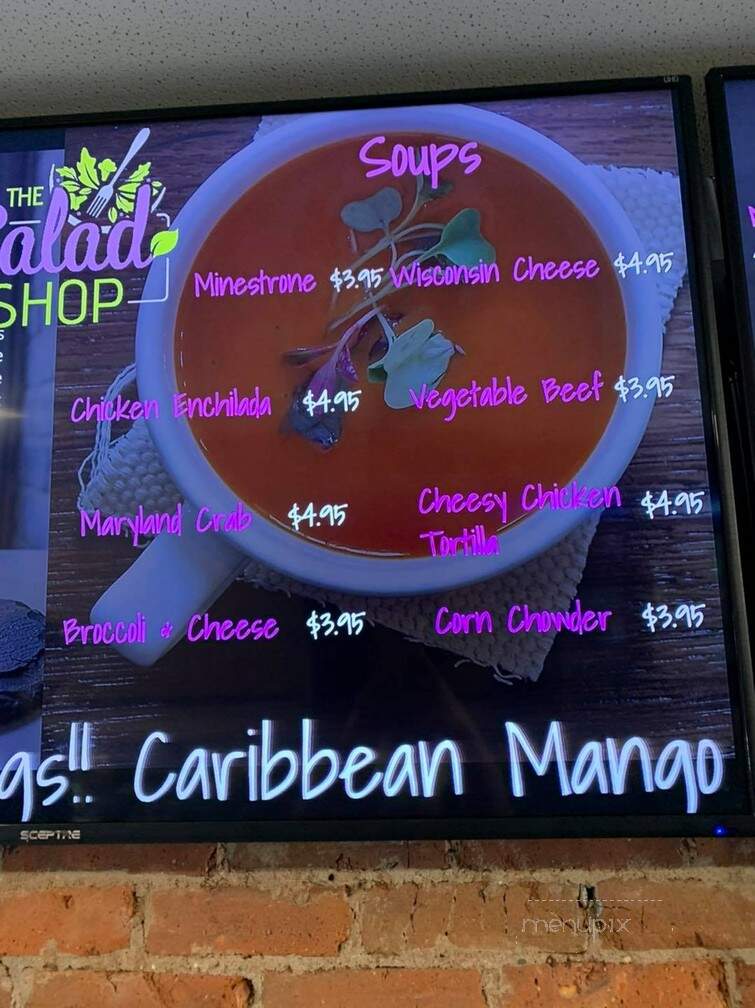 UHD
THE
Salad
SHOP
Soups
Minestrone $3.95
Wisconsin Cheese $4.95
Chicken Enchilada $4.95
Vegetable Beef $3.95
Maryland Crab $4.95
Cheesy Chicken $4.95
Tortilla
Broccoli & Cheese $3.95
Corn Chowder $3.95
gs!! Caribbean Mango
SCEPTRE
menupix